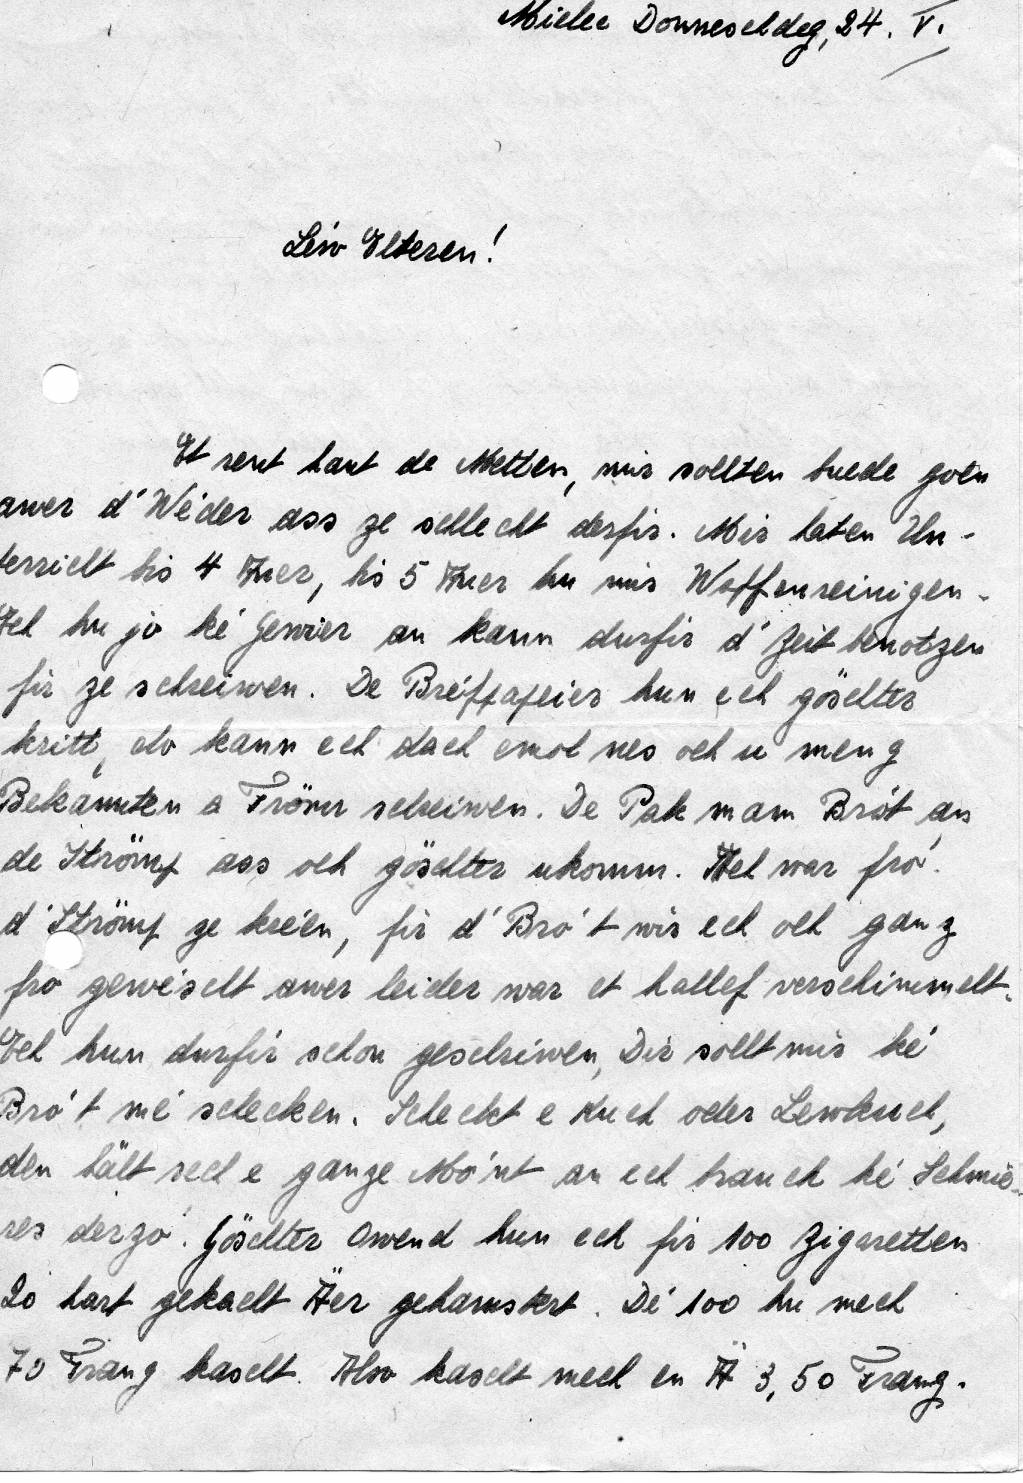 Mielec Donneschdeg, 24. V.
Léiw Elteren!
Et rent haut de Metten, mir sollten buede goen
awer d'Wéder ass ze schlecht derfir. Mir haten Un-
terricht bis 4 Auer, bis 5 Auer hu mir Waffenreinigen.
Ech hu jo ké Gewier an kann durfir d'Zeit benotzen
fir ze schreiwen. De Bréifpapeier hun ech göschter
kritt, elo kann ech dach emol nes och u meng
Bekannten a Frönn schreiwen. De Pak mam Bró't an
de Strömp ass och göschter ukomm. Ech war fró
d'Strömp ze kréien, fir d'Bró't wir ech och ganz
fro gewéscht awer leider war et hallef verschimmelt.
Ech hun durfir schon geschriwen, Dir sollt mir ké
Bró't mé schecken. Scheckt e Kuch oder Lewkuch,
den hält sech e ganze Mó'nt an ech brauch ké Schmie-
res derzó. Göschter Owend hun ech fir 100 Zigaretten
20 hart gekacht Äer gehamstert. Dé 100 hu mech
70 Frang kascht. Also kascht mech en Ä 3,50 Frang.